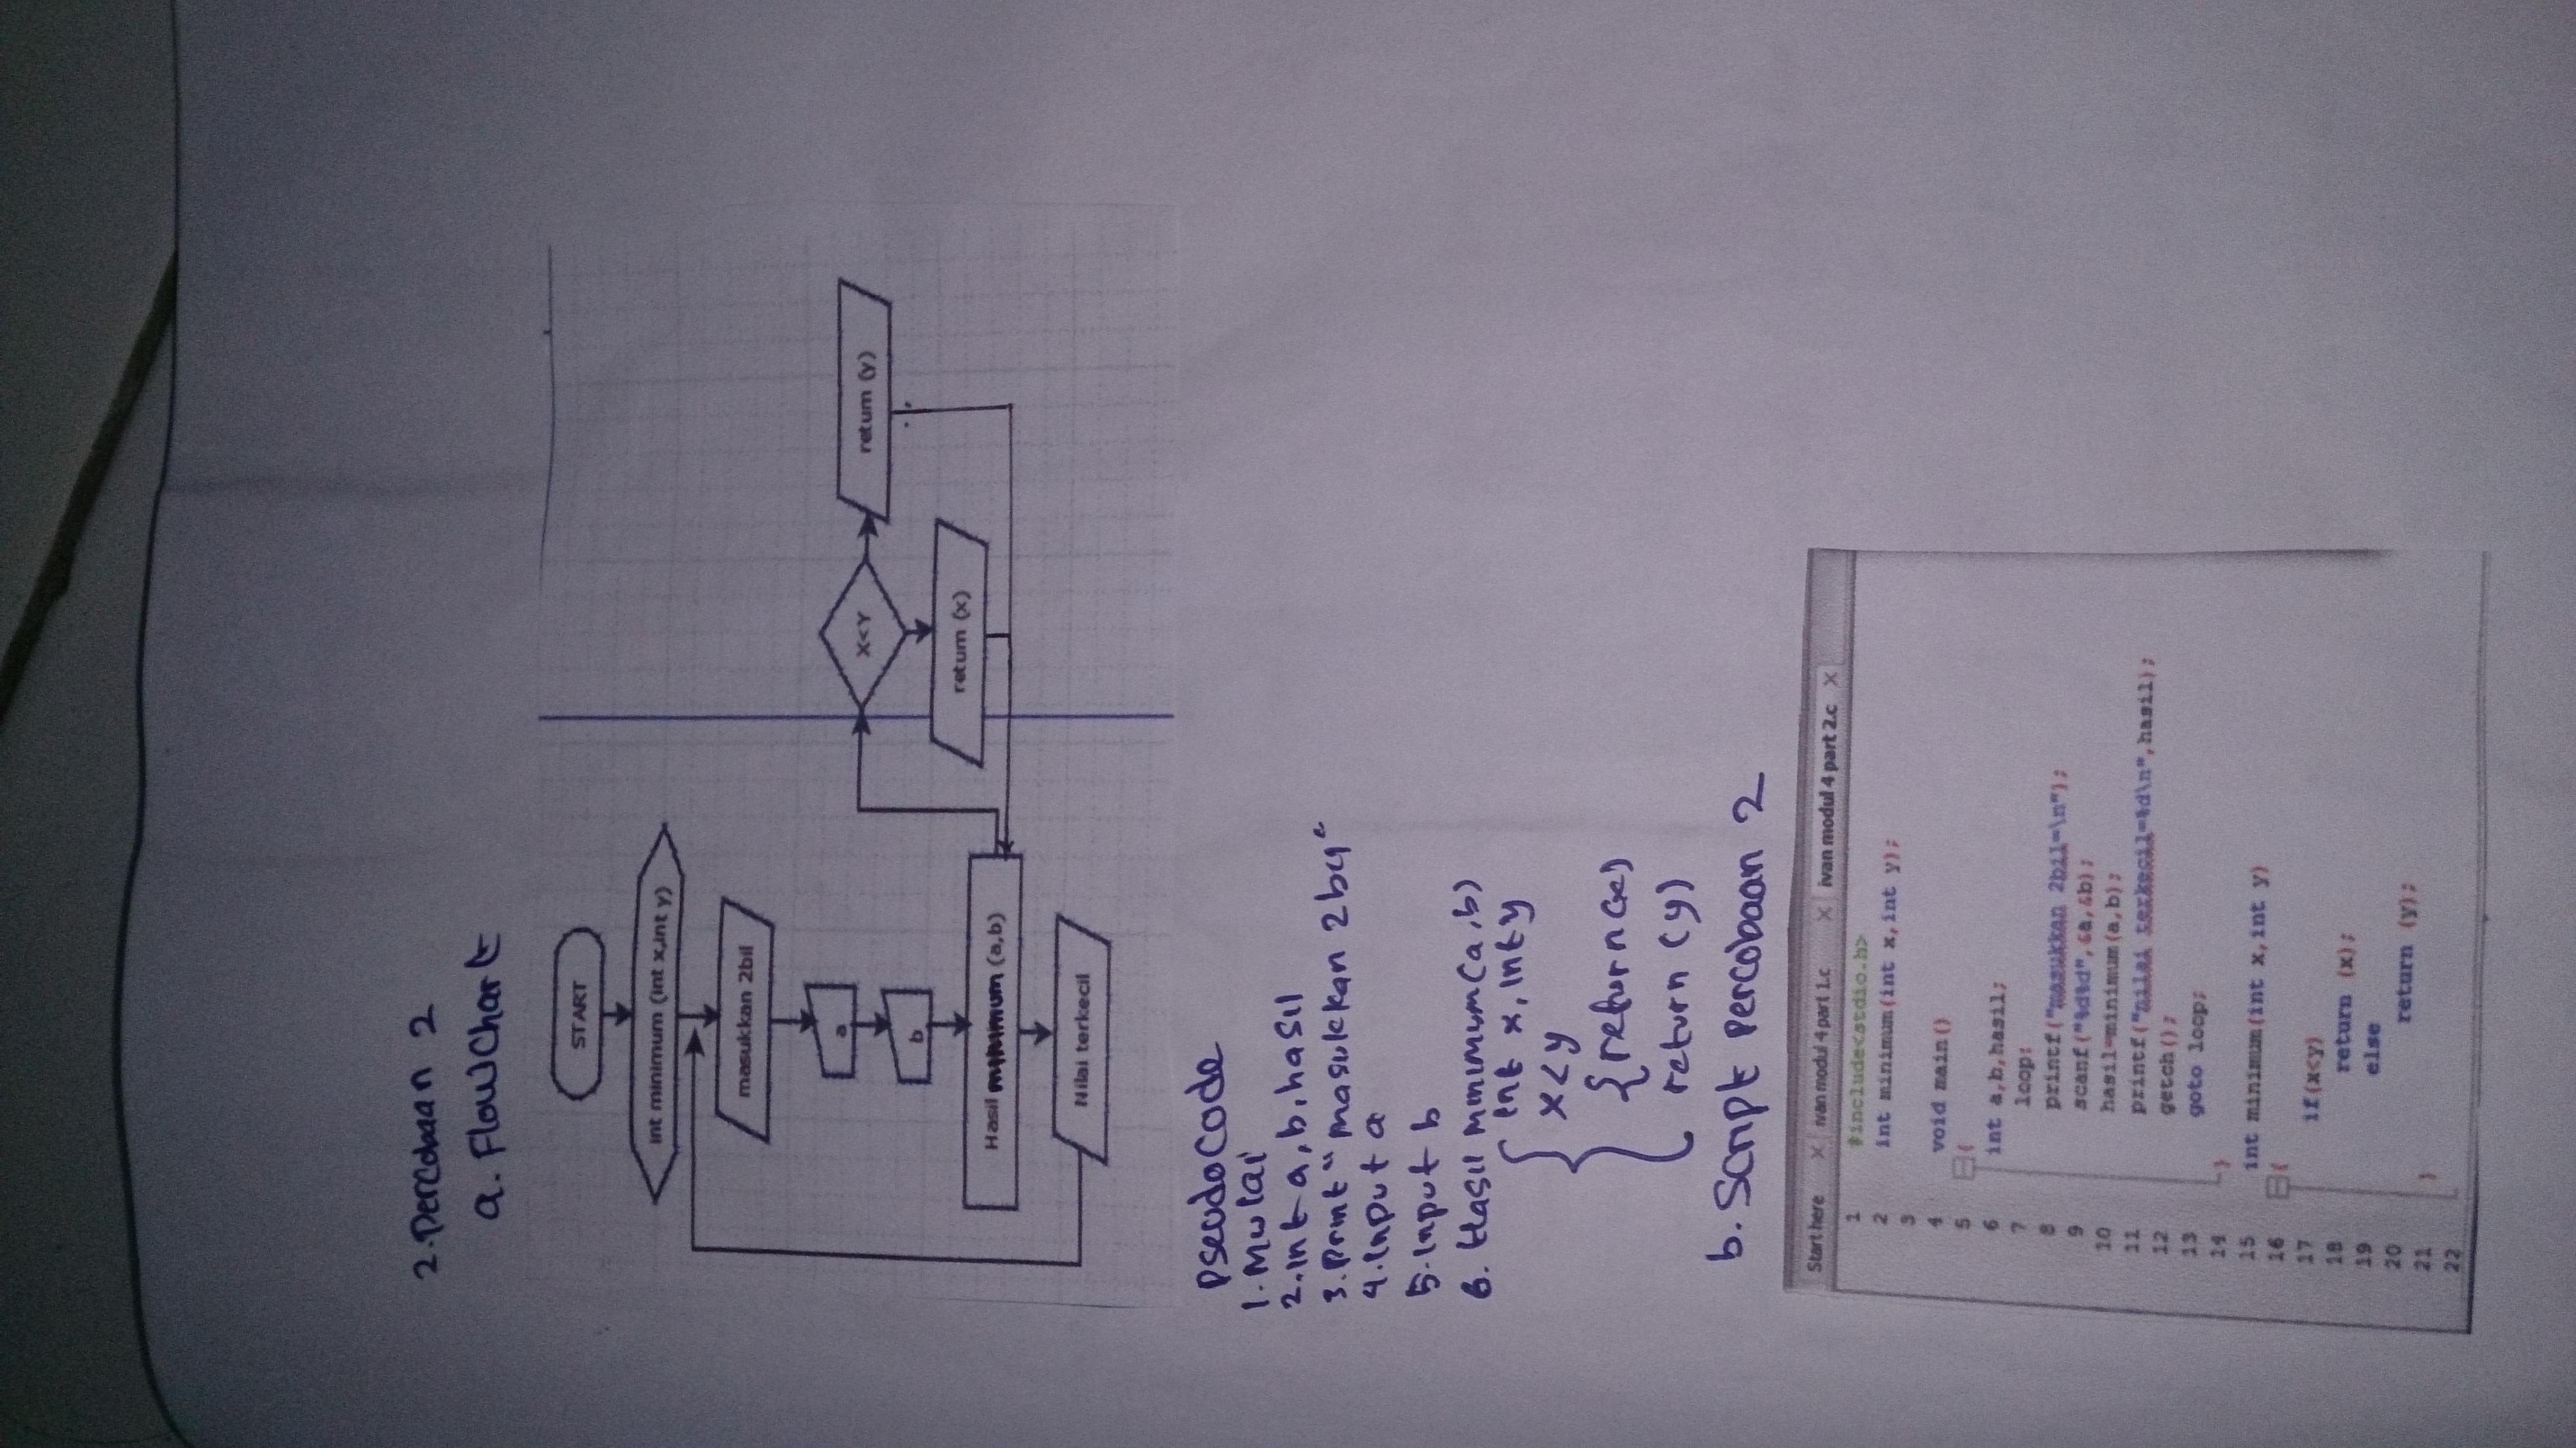 2. Percobaan 2
a. Flowchart
START
int minimum (int x,int y)
masukkan 2bil
a
b
Hasil minimum (a,b)
Nilai terkecil
X<Y
return (x)
return (y)
Pseudocode
1. Mulai
2. int a, b, hasil
3. Print "masukkan 2
4. Input a
5. Input b
6. Hasil minimum (a, b)
{ int x, int y
x < y
{ return (x)
return (y)
}
b. Script percobaan 2
Start here X ivan modul 4 part 1.c X ivan modul 4 part 2.c X
1 #include<stdio.h>
2 int minimum(int x,int y);
3
4 void main()
5 {
6 int a,b,hasil;
7 loop:
8 printf("masukkan 2bil=\n");
9 scanf("%d%d",&a,&b);
10 hasil=minimum(a,b);
11 printf("nilai terkecil=%d\n",hasil);
12 getch();
13 goto loop;
14 }
15 int minimum(int x,int y)
16 {
17 if(x<y)
18 return (x);
19 else
20 return (y);
21 }
22